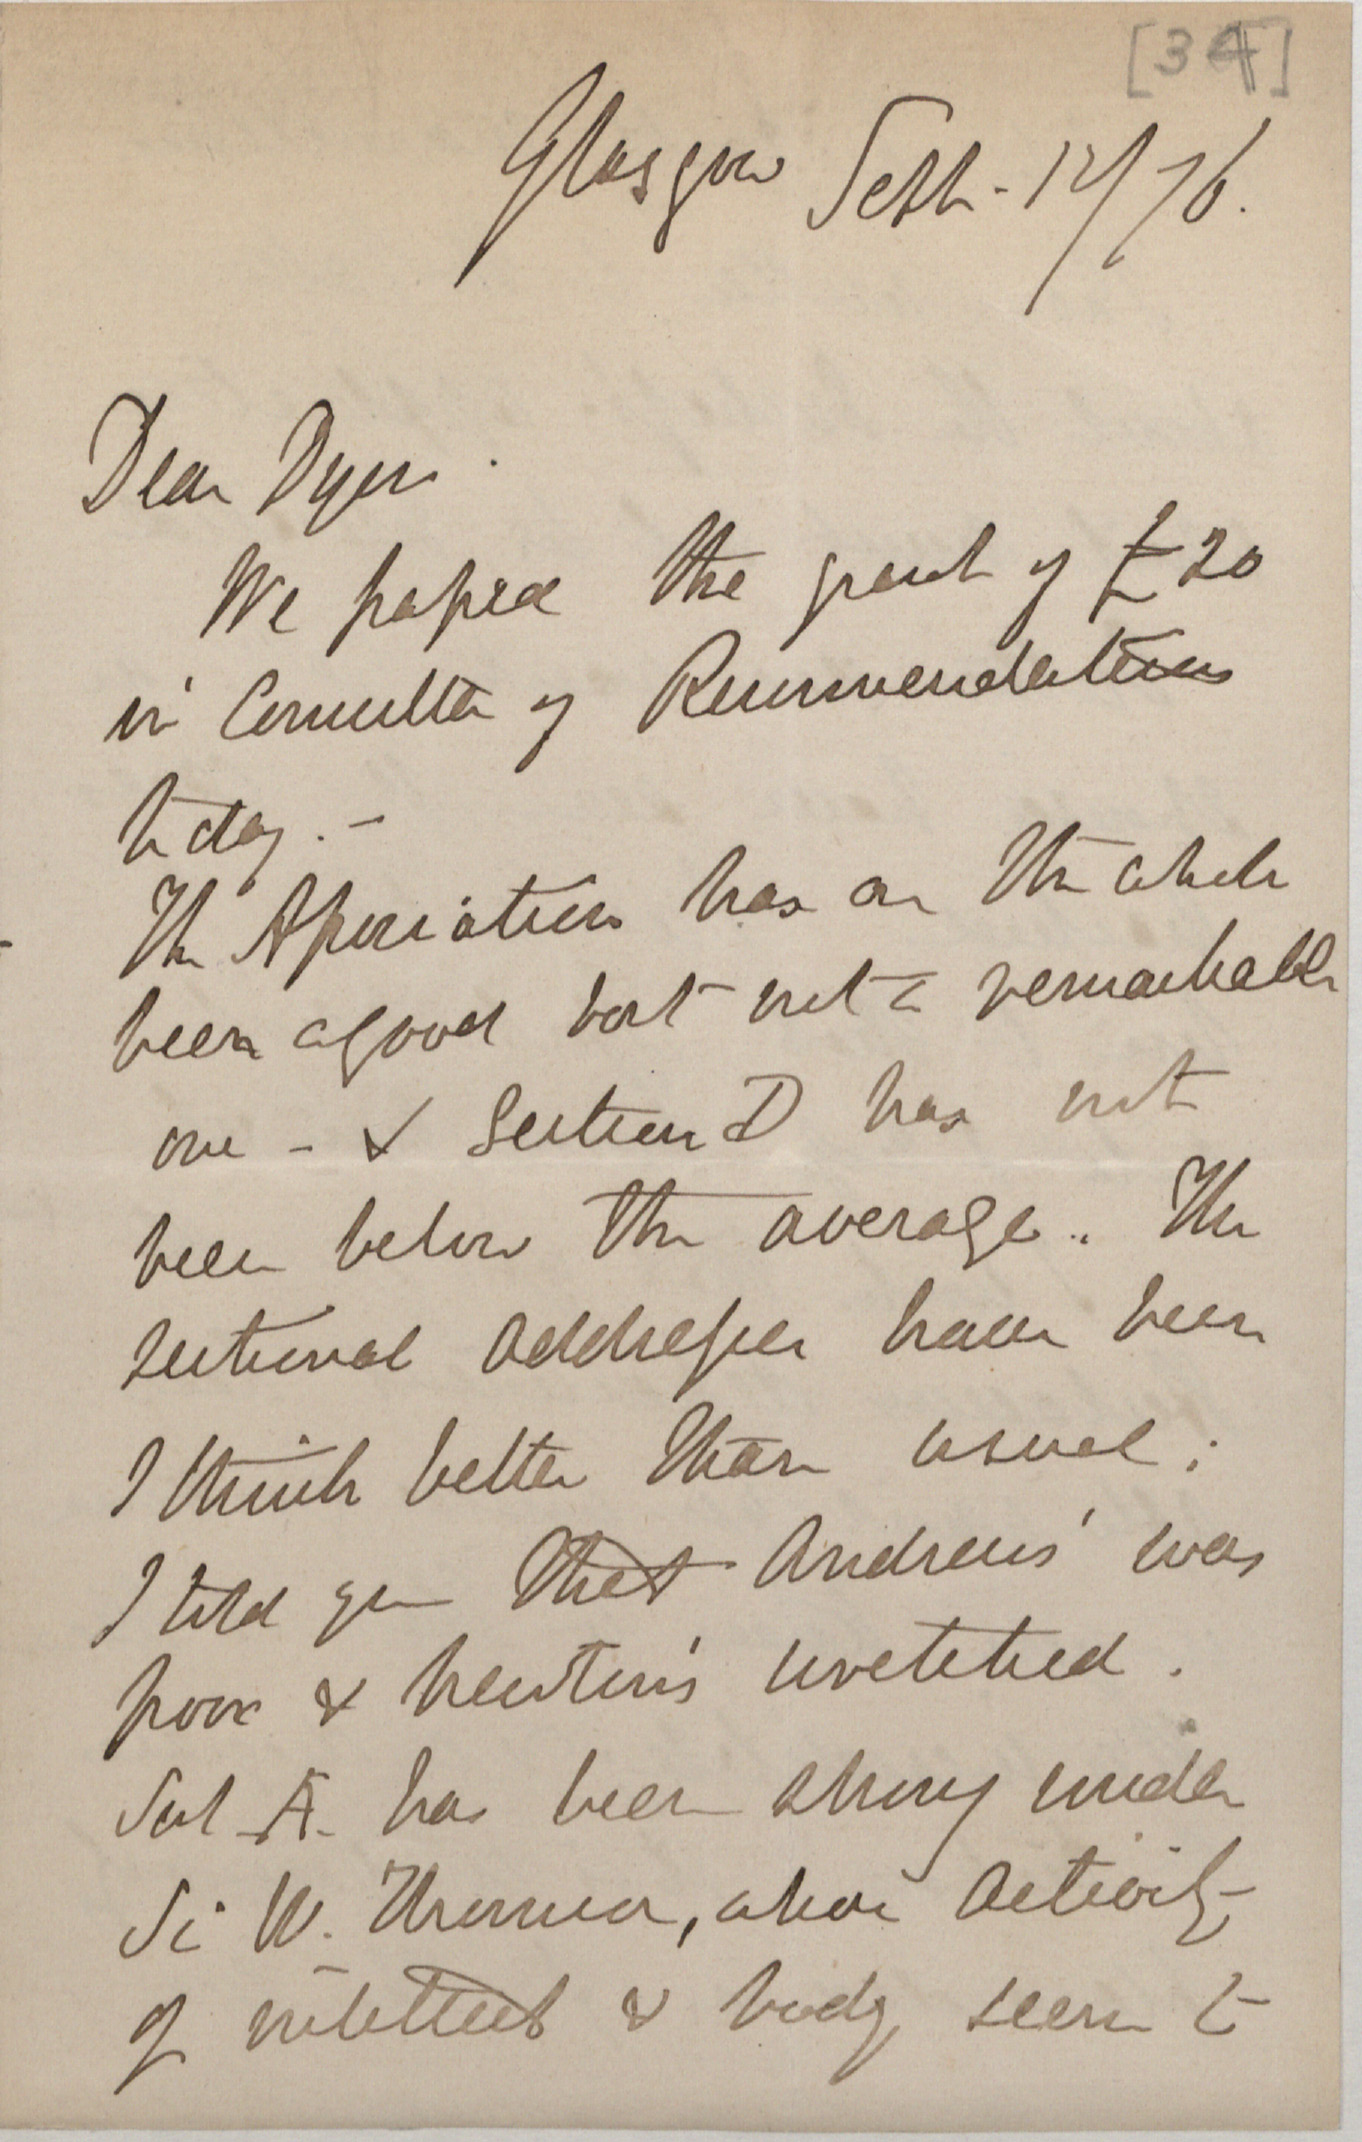 [34]
Glasgow Sept. 12/76.
Dear Dyer.
We passed the grant of £20
in Committee of Recommendations
today. -
The Association has on the whole
been a good but not a remarkable
one - & Section D has not
been below the average. The
sectional addresses have been
I think better than usual;
I told you that Andrews' was
poor & Newton's wretched.
Sect A. has been strong under
Sir W. Thomson, whose activity
of intellect & body seem to